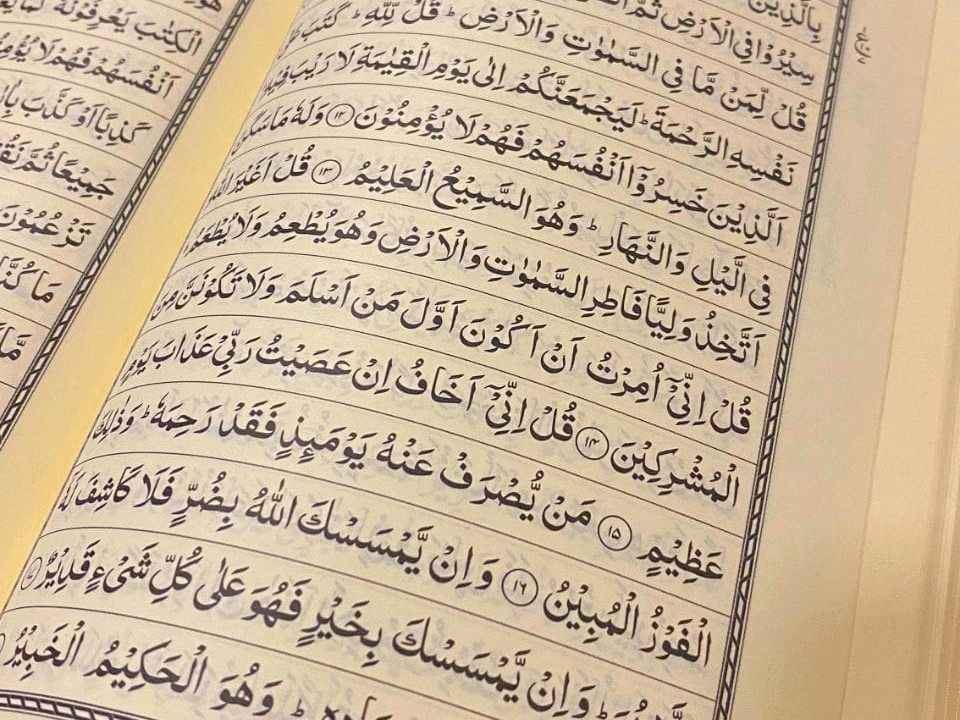 بِالَّذِيْنَ
سِيْرُوْا فِي الْاَرْضِ ثُمَّ
قُلْ لِّمَنْ مَّا فِي السَّمٰوٰتِ وَالْاَرْضِ ؕ قُلْ لِّلّٰهِ ؕ كَتَبَ
نَفْسِهِ الرَّحْمَةَ ؕ لَيَجْمَعَنَّكُمْ اِلٰى يَوْمِ الْقِيٰمَةِ لَا رَيْبَ فِيْهِ
اَلَّذِيْنَ خَسِرُوْۤا اَنْفُسَهُمْ فَهُمْ لَا يُؤْمِنُوْنَ ۱۲ وَلَهٗ مَا سَكَنَ
فِي الَّيْلِ وَالنَّهَارِ ؕ وَهُوَ السَّمِيْعُ الْعَلِيْمُ ۱۳ قُلْ اَغَيْرَ اللّٰهِ
اَتَّخِذُ وَلِيًّا فَاطِرِ السَّمٰوٰتِ وَالْاَرْضِ وَهُوَ يُطْعِمُ وَلَا يُطْعَمُ
قُلْ اِنِّيْۤ اُمِرْتُ اَنْ اَكُوْنَ اَوَّلَ مَنْ اَسْلَمَ وَلَا تَكُوْنَنَّ مِنَ
الْمُشْرِكِيْنَ ۱۴ قُلْ اِنِّيْۤ اَخَافُ اِنْ عَصَيْتُ رَبِّيْ عَذَابَ يَوْمٍ
عَظِيْمٍ ۱۵ مَنْ يُّصْرَفْ عَنْهُ يَوْمَئِذٍ فَقَدْ رَحِمَهٗ ؕ وَذٰلِكَ
الْفَوْزُ الْمُبِيْنُ ۱۶ وَاِنْ يَّمْسَسْكَ اللّٰهُ بِضُرٍّ فَلَا كَاشِفَ لَهٗۤ
وَاِنْ يَّمْسَسْكَ بِخَيْرٍ فَهُوَ عَلٰى كُلِّ شَيْءٍ قَدِيْرٌ
وَهُوَ الْحَكِيْمُ الْخَبِيْرُ
الْكِتٰبَ يَعْرِفُوْنَهٗ كَمَا
اَنْفُسَهُمْ فَهُمْ لَا
كَذِبًا اَوْ كَذَّبَ
جَمِيْعًا ثُمَّ
تَزْعُمُوْنَ
مَا كُنَّا